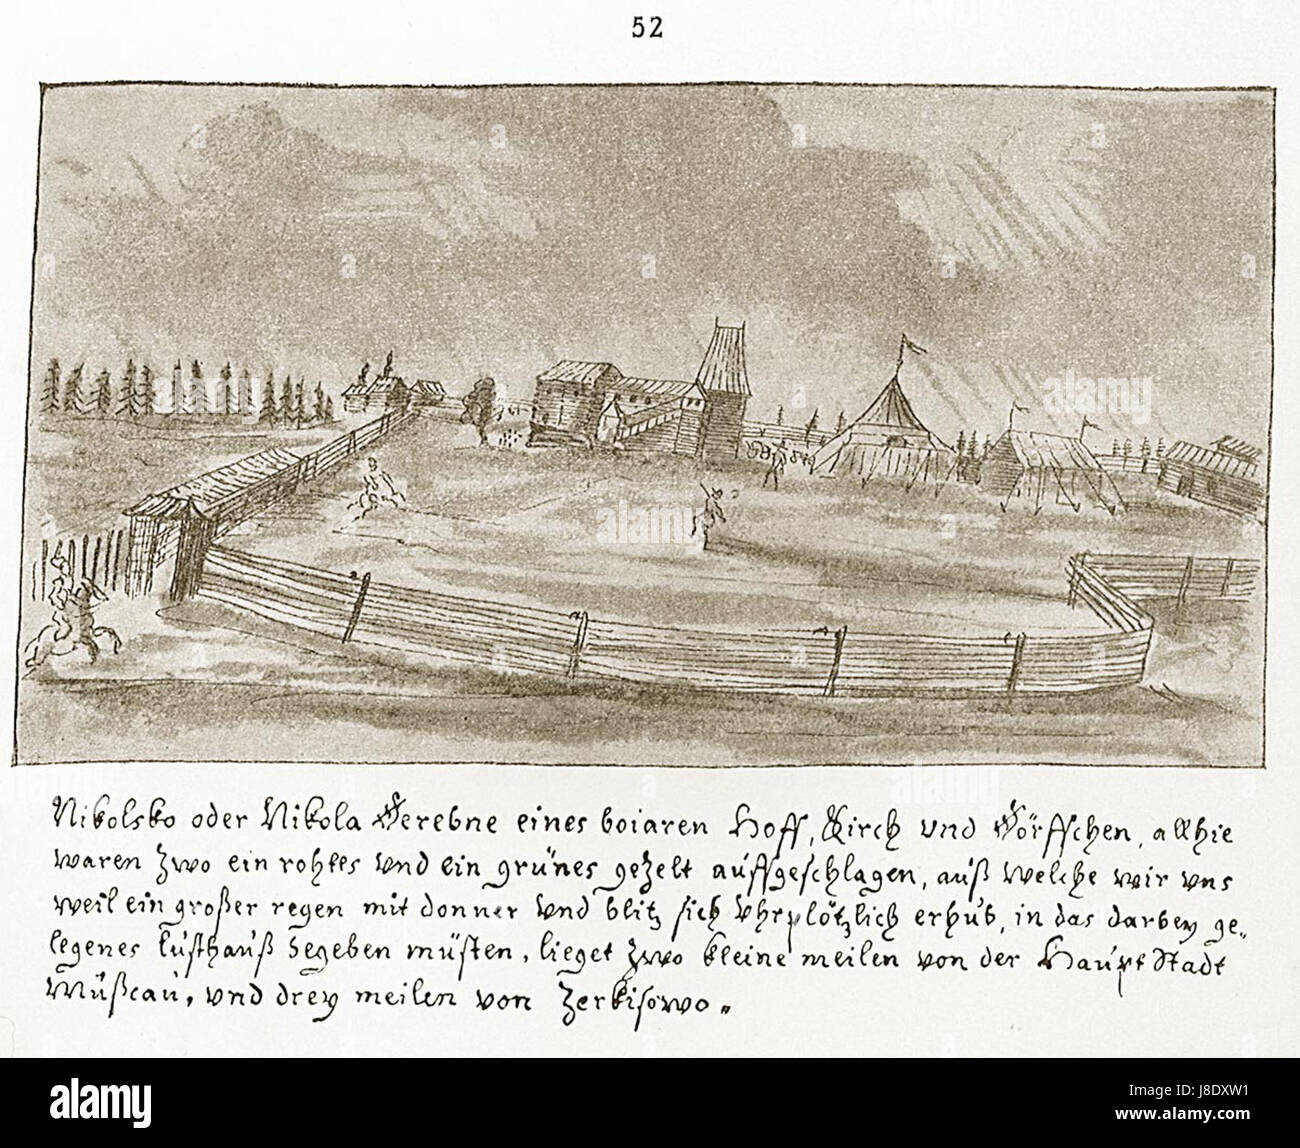 52
Nikolsko oder Nikola Derebne eines boiaren Hoff, Kirch und Dörffchen, allhie
waren zwo ein rohtes und ein grünes gezelt auffgeschlagen, auß welche wir uns
weil ein großer regen mit donner und blitz sich uhrplötzlich erhub, in das darbey ge„
legenes lusthauß begeben müsten, lieget zwo kleine meilen von der Haupt Stadt
Mußcau, und drey meilen von Zerkisowo„
a
a
a
a
a
a
alamy
Image ID: J8DXW1
www.alamy.com